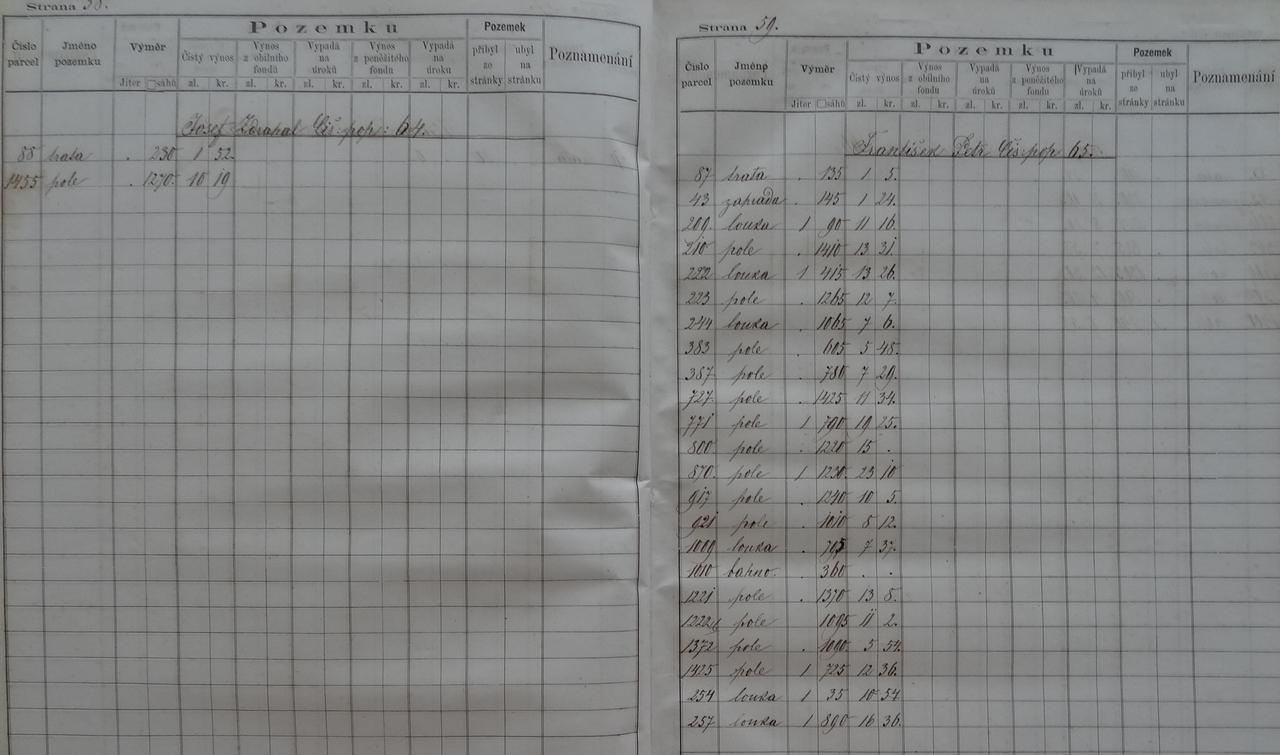 Strana 58.
Pozemku
Pozemek
Číslo parcel
Jméno pozemku
Výměr
Čistý výnos
Výnos z obilního fondu
Vypadá na úroků
Výnos z peněžitého fondu
Vypadá na úroku
přibyl ze stránky
ubyl na stránku
Poznamenání
Jiter □sáhů zl. kr. zl. kr. zl. kr. zl. kr. zl. kr.
Josef Zdrahal Čís: pop: 64.
88 trata . 230 1 32.
1455 pole . 1270. 10 19
Strana 59.
Pozemku
Pozemek
Číslo parcel
Jméno pozemku
Výměr
Čistý výnos
Výnos z obilního fondu
Vypadá na úroků
Výnos z peněžitého fondu
Vypadá na úroku
přibyl ze stránky
ubyl na stránku
Poznamenání
Jiter □sáhů zl. kr. zl. kr. zl. kr. zl. kr. zl. kr.
František Petr Čís pop 65.
87 trata . 135 1 5.
43 zahrada . 145 1 24.
209. louka 1 90 11 16.
210 pole . 1410 13 31.
222 louka 1 415 13 26.
223 pole . 1265 12 7.
244 louka . 1065 7 6.
383 pole . 605 5 48.
387 pole . 780 7 29.
727 pole . 1425 11 34.
771 pole 1 790 19 25.
800 pole . 1220 15 .
870. pole 1 1230. 23 10
917 pole . 1240 10 5.
921 pole . 1010 8 12.
1009 louka . 705 7 37.
1010 bahno. . 360 . .
1221 pole . 1370 13 8.
pole 1095 11 2.
1372 pole . 1090. 5 54.
1425 pole 1 725 12 36.
254 louka 1 35 10 54.
257 louka 1 890 16 36.